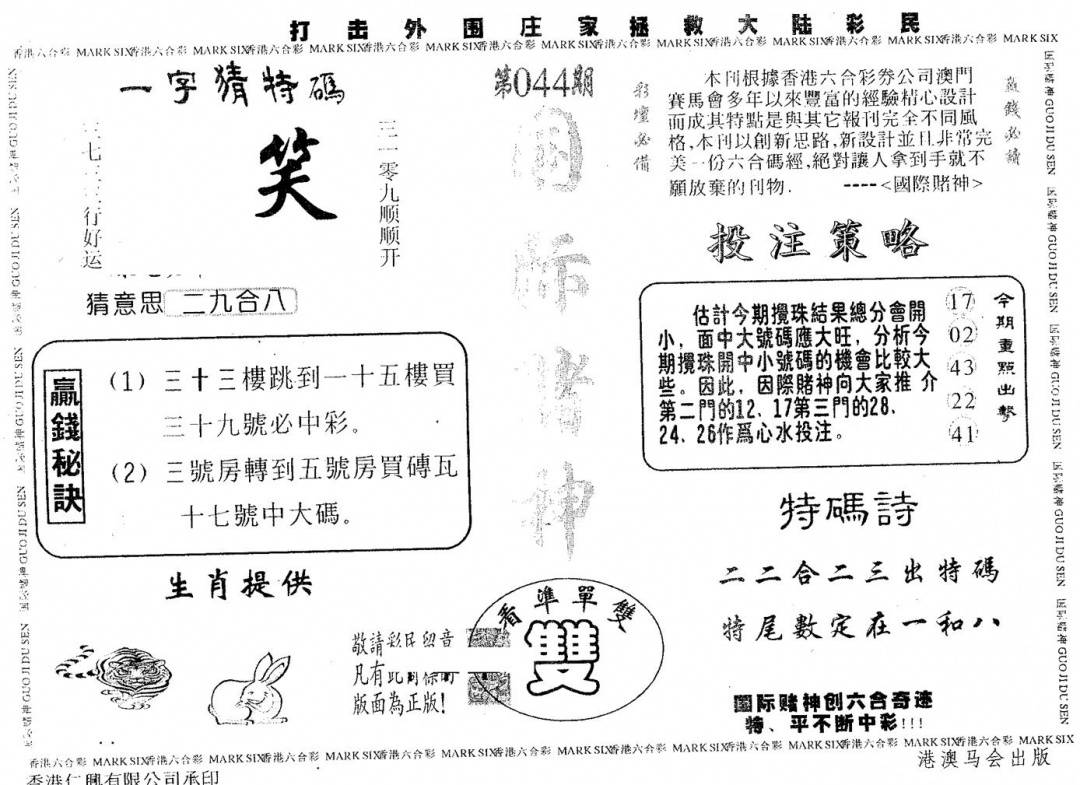 打击外围庄家拯救大陆彩民
香港六合彩 MARK SIX香港六合彩 MARK SIX香港六合彩 MARK SIX香港六合彩 MARK SIX香港六合彩 MARK SIX香港六合彩 MARK SIX香港六合彩 MARK SIX香港六合彩 MARK SIX香港六合彩 MARK SIX
一字猜特碼
笑
三一零九顺顺开
行好运
猜意思 二九合八
贏錢秘訣
(1) 三十三樓跳到一十五樓買
三十九號必中彩。
(2) 三號房轉到五號房買磚瓦
十七號中大碼。
生肖提供
第044期
國际赌神
敬請彩民留意
凡有此
版面為正版!
看準單雙
雙
彩壇必備
本刊根據香港六合彩券公司澳門
賽馬會多年以來豐富的經驗精心設計
而成其特點是與其它報刊完全不同風
格,本刊以創新思路,新設計並且非常完
美一份六合碼經,絕對讓人拿到手就不
願放棄的刊物. ----<國際賭神>
贏錢必讀
投注策略
估計今期攪珠結果總分會開
小，面中大號碼應大旺，分析今
期攪珠開中小號碼的機會比較大
些。因此，因際賭神向大家推介
第二門的12、17第三門的28、
24、26作爲心水投注。
17
02
43
22
41
今期重點出擊
特碼詩
二二合二三出特碼
特尾數定在一和八
國际赌神创六合奇迹
特、平不断中彩!!!
国际赌神 GUO JI DU SEN 国际赌神 GUO JI DU SEN 国际赌神 GUO JI DU SEN 国际赌神 GUO JI DU SEN 国际赌神 GUO JI DU SEN
香港六合彩 MARK SIX香港六合彩 MARK SIX香港六合彩 MARK SIX香港六合彩 MARK SIX香港六合彩 MARK SIX香港六合彩 MARK SIX香港六合彩 MARK SIX香港六合彩 MARK SIX香港六合彩 MARK SIX
香港仁興有限公司承印
港澳马会出版